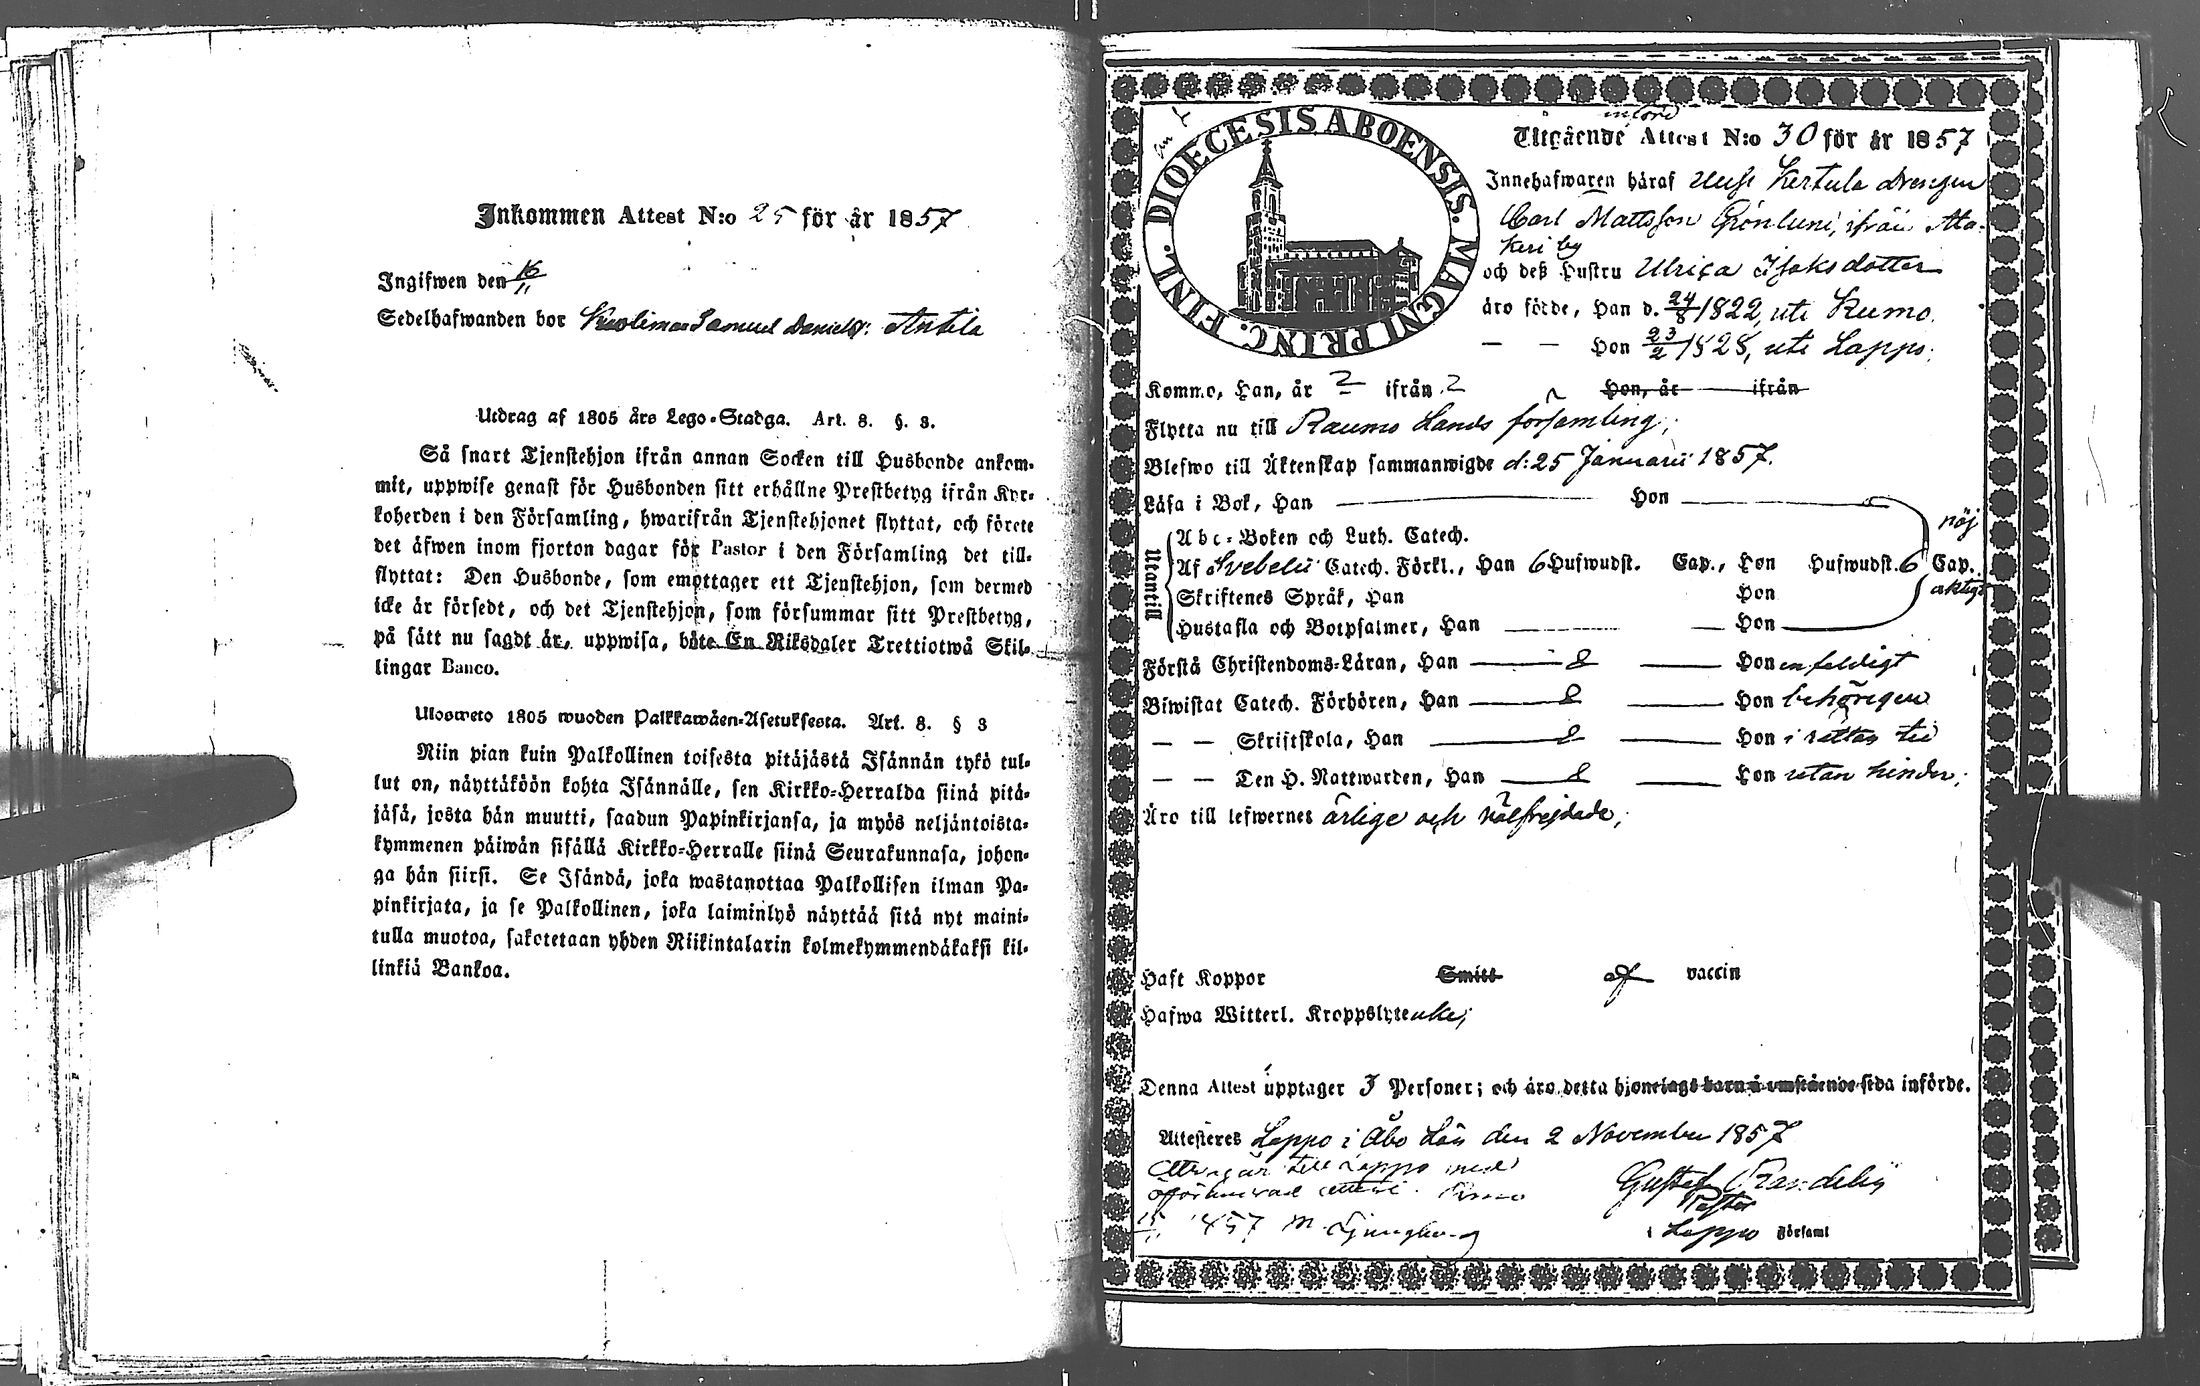 Inkommen Attest N:o 25 för år 1857
Ingifwen den 16/11
Sedelhafwanden bor Samuel Daniels. Antila
Utdrag af 1805 års Lego-Stadga. Art. 8. §. 3.
Så snart Tjenstehjon ifrån annan Socken till Husbonde ankom-
mit, uppwise genast för Husbonden sitt erhållne Prestbetyg ifrån Kyr-
koherden i den Församling, hwarifrån Tjenstehjonet flyttat, och förete
det äfwen inom fjorton dagar för Pastor i den Församling det till-
flyttat: Den Husbonde, som emottager ett Tjenstehjon, som dermed
icke är försedt, och det Tjenstehjon, som försummar sitt Prestbetyg,
på sätt nu sagdt är, uppwisa, böte En Riksdaler Trettiotwå Skil-
lingar Banco.
Ulosweto 1805 wuoden Palkkawäen-Asetuksesta. Art. 8. § 3
Niin pian kuin Palkollinen toisesta pitäjästä Isännän tykö tul-
lut on, näyttäköön kohta Isännälle, sen Kirkko-Herralda siinä pitä-
jäsä, josta hän muutti, saadun Papinkirjansa, ja myös neljäntoista-
kymmenen päiwän sisällä Kirkko-Herralle siinä Seurakunnasa, johon-
ga hän siirsi. Se Isändä, joka wastanottaa Palkollisen ilman Pa-
pinkirjata, ja se Palkollinen, joka laiminlyö näyttää sitä nyt maini-
tulla muotoa, sakotetaan yhden Riikintalarin kolmekymmendäkaksi kil-
linkiä Bankoa.
DIOECESIS ABOENSIS. MAGNI PRINC. FINL.
Utgående Attest N:o 30 för år 1857
Innehafwaren häraf Kertula drengen
Carl Mattsson Grönlund, ifrån Ata-
keri by
och deß Hustru Ulrica Isaksdotter
äro födde, Han d. 24/8 1822, uti Kumo.
— — Hon 23/2 1828, uti Lappo;
Komne, Han, år ? ifrån ? Hon, år ifrån
Flytta nu till Raumo Lands församling;
Blefwo till Äktenskap sammanwigde d: 25 Januarii 1857.
Läsa i Bok, Han — Hon —
nöj
Abc-Boken och Luth. Catech.
Utantill
Af Svebelii Catech. Förkl., Han 6 Hufwudst. Cap., Hon Hufwudst. 6 Cap.
aktigt
Skriftenes Språk, Han Hon
Hustafla och Botpsalmer, Han — Hon —
Förstå Christendoms-Läran, Han — Hon enfaldigt
Biwistat Catech. Förhören, Han — Hon behörigen
— — Skriftskola, Han — Hon i rättan tid
— — Den H. Nattwarden, Han — Hon utan hinder;
Äro till lefwernet ärlige och välfrejdade;
Haft Koppor Smitt af vaccin
Hafwa Witterl. Kroppslyte icke;
Denna Attest upptager 3 Personer; och äro detta hjonelags barn å omstående sida införde.
Attesteres Lappo i Åbo Län den 2 November 1857
Återgår till Lappo med
oförändrad attest. Kumo
15/11 1857 M. Ljungberg
Gustaf Randelin
Pastor
i Lappo Församl